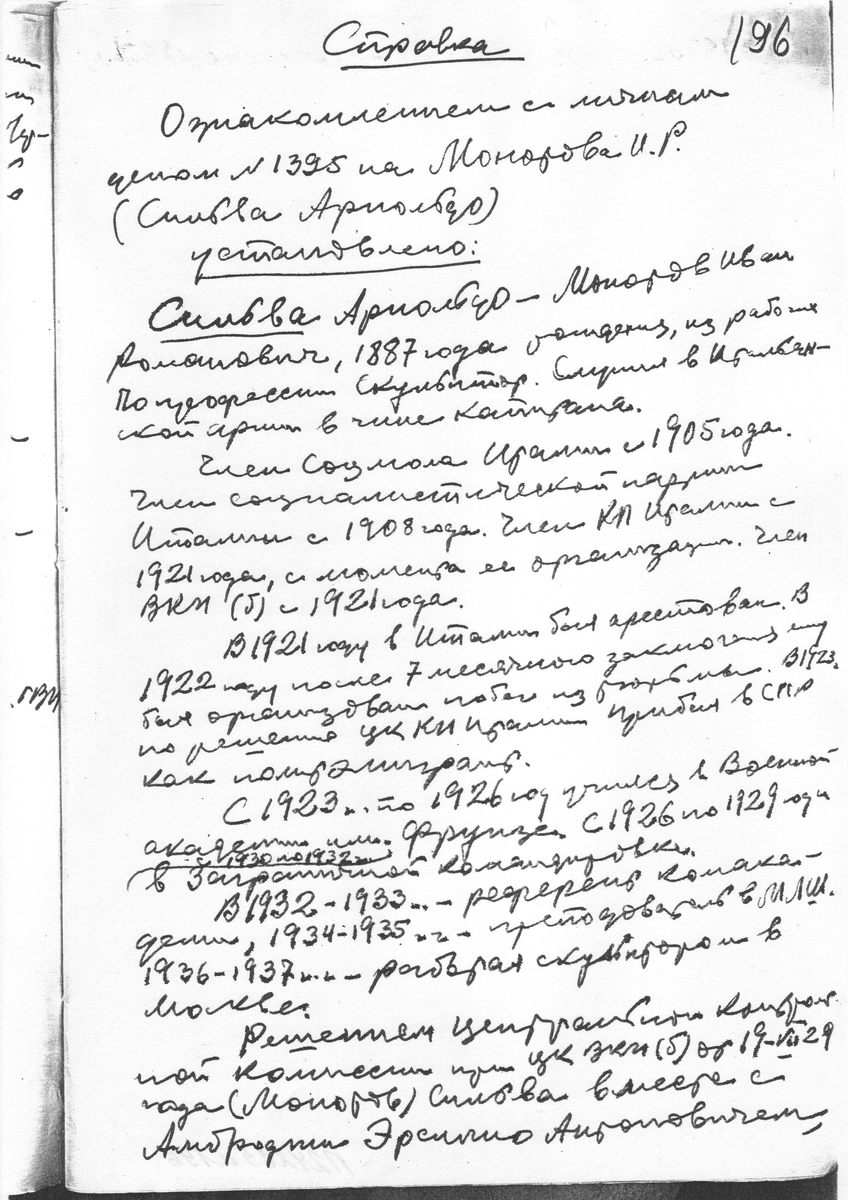 Справка
196
Ознакомлением с личным
делом N 1395 на Монотова И.Р.
(Сильва Арнольдо)
установлено:
Сильва Арнольдо – Монотов Иван
Романович, 1887 года рождения, из рабочих
По профессии скульптор. Служил в Итальян-
ской армии в чине капитана.
Член Соцмола Италии с 1905 года.
Член социалистической партии
Италии с 1908 года. Член КП Италии с
1921 года, с момента ее организации. Член
ВКП (б) с 1921 года.
В 1921 году в Италии был арестован. В
1922 году после 7 месячного заключения ему
был организован побег из тюрьмы. В 1923г.
по решению ЦК КП Италии прибыл в СССР
как политэмигрант.
С 1923 г. по 1926 год учился в Военной
академии им. Фрунзе. С 1926 по 1929 годы
1930 по 1932 г.
в заграничной командировке.
В 1932-1933 г.г. – референт комака-
демии, 1934-1935 г.г. – преподаватель в МЛШ.
1936-1937 г.г. – работал скульптором в
Москве.
Решением Центральной контроль
ной комиссии при ЦК ВКП (б) от 19-VII 29
года (Монотов) Сильва вместе с
Амброджи Эрсилио Антоновичем,